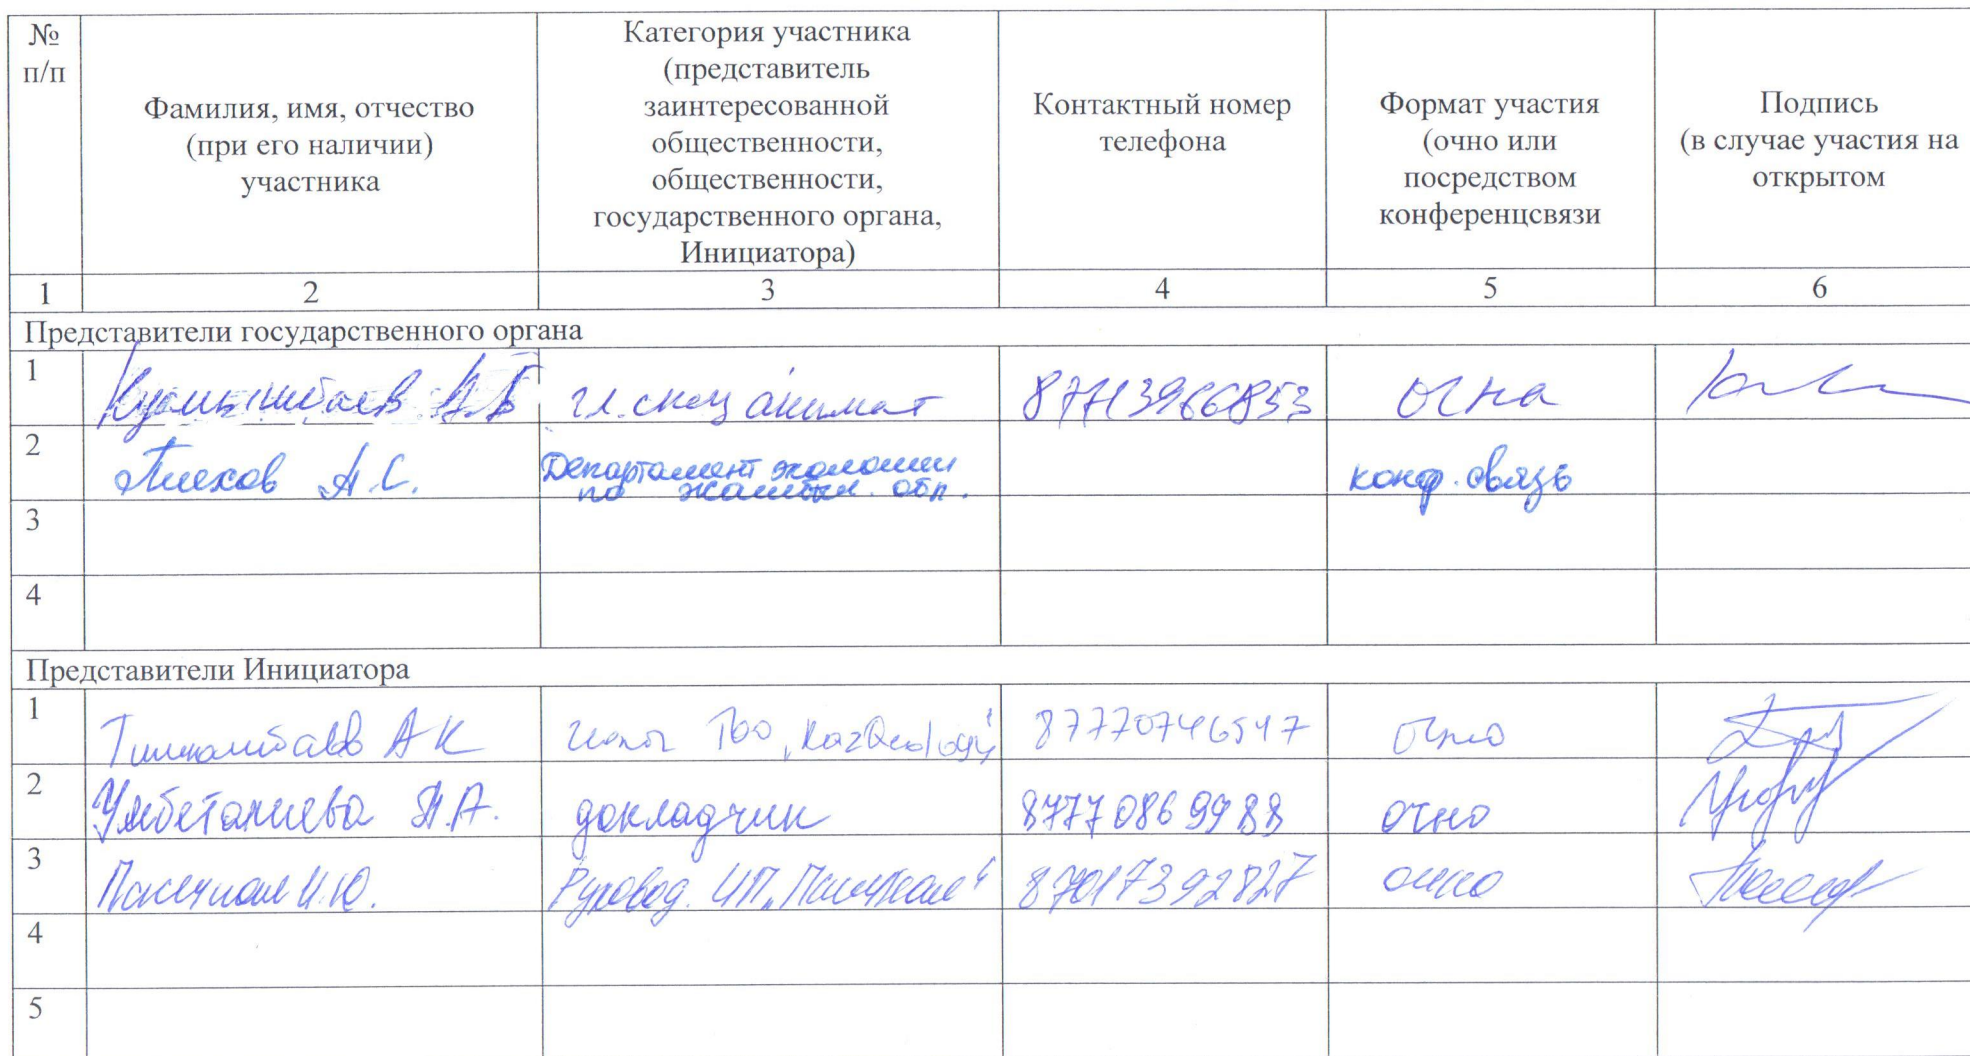 №
п/п
Фамилия, имя, отчество
(при его наличии)
участника
Категория участника
(представитель
заинтересованной
общественности,
общественности,
государственного органа,
Инициатора)
Контактный номер
телефона
Формат участия
(очно или
посредством
конференцсвязи
Подпись
(в случае участия на
открытом
1 2 3 4 5 6
Представители государственного органа
1 гл. спец акимат 87713966853 очна
2 А.С. Департамент экологии
по обл. конф. связь
3
4
Представители Инициатора
1 А К ТОО 87770746547 очно
2 Умбеталиева А.А. докладчик 87770869988 очно
3 Пасечная И.Ю. Руковод. ИП "Пасечная" 87017392827 очно
4
5